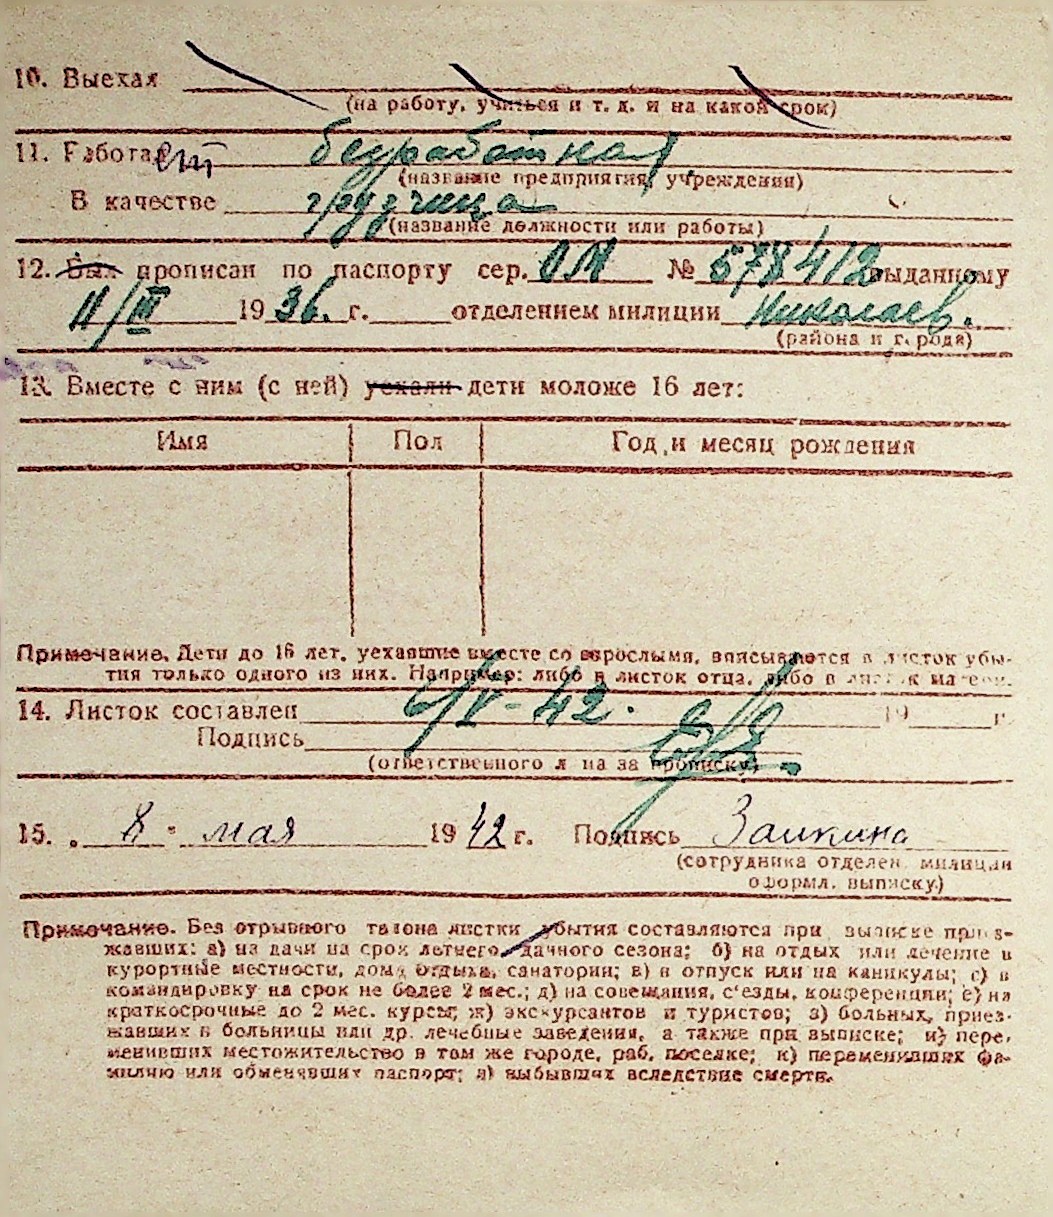 10. Выехал
(на работу, учиться и т. д. и на какой срок)
11. Работает безработная
(название предприятия, учреждения)
В качестве грузчица
(название должности или работы)
12. Был прописан по паспорту сер. ОМ № 578412 выданному
11/III 1936. г. отделением милиции Николаев.
(района и города)
13. Вместе с ним (с ней) уехали дети моложе 16 лет:
Имя Пол Год и месяц рождения
Примечание. Дети до 16 лет, уехавшие вместе со взрослыми, вписываются в листок убы-
тия только одного из них. Например: либо в листок отца, либо в листок матери.
14. Листок составлен 6/V-42. 19 г.
Подпись
(ответственного лица за прописку)
15. „8" мая 1942 г. Подпись Заикина
(сотрудника отделен. милиции
оформл. выписку.)
Примечание. Без отрывного талона листки убытия составляются при выписке приез-
жавших: а) на дачи на срок летнего, дачного сезона; б) на отдых или лечение в
курортные местности, дома отдыха, санатории; в) в отпуск или на каникулы; г) в
командировку на срок не более 2 мес.; д) на совещания, с'езды, конференции; е) на
краткосрочные до 2 мес. курсы; ж) экскурсантов и туристов; з) больных, приез-
жавших в больницы или др. лечебные заведения, а также при выписке; и) пере-
менивших местожительство в том же городе, раб. поселке; к) переменивших фа-
милию или обменявших паспорт; л) выбывших вследствие смерти.